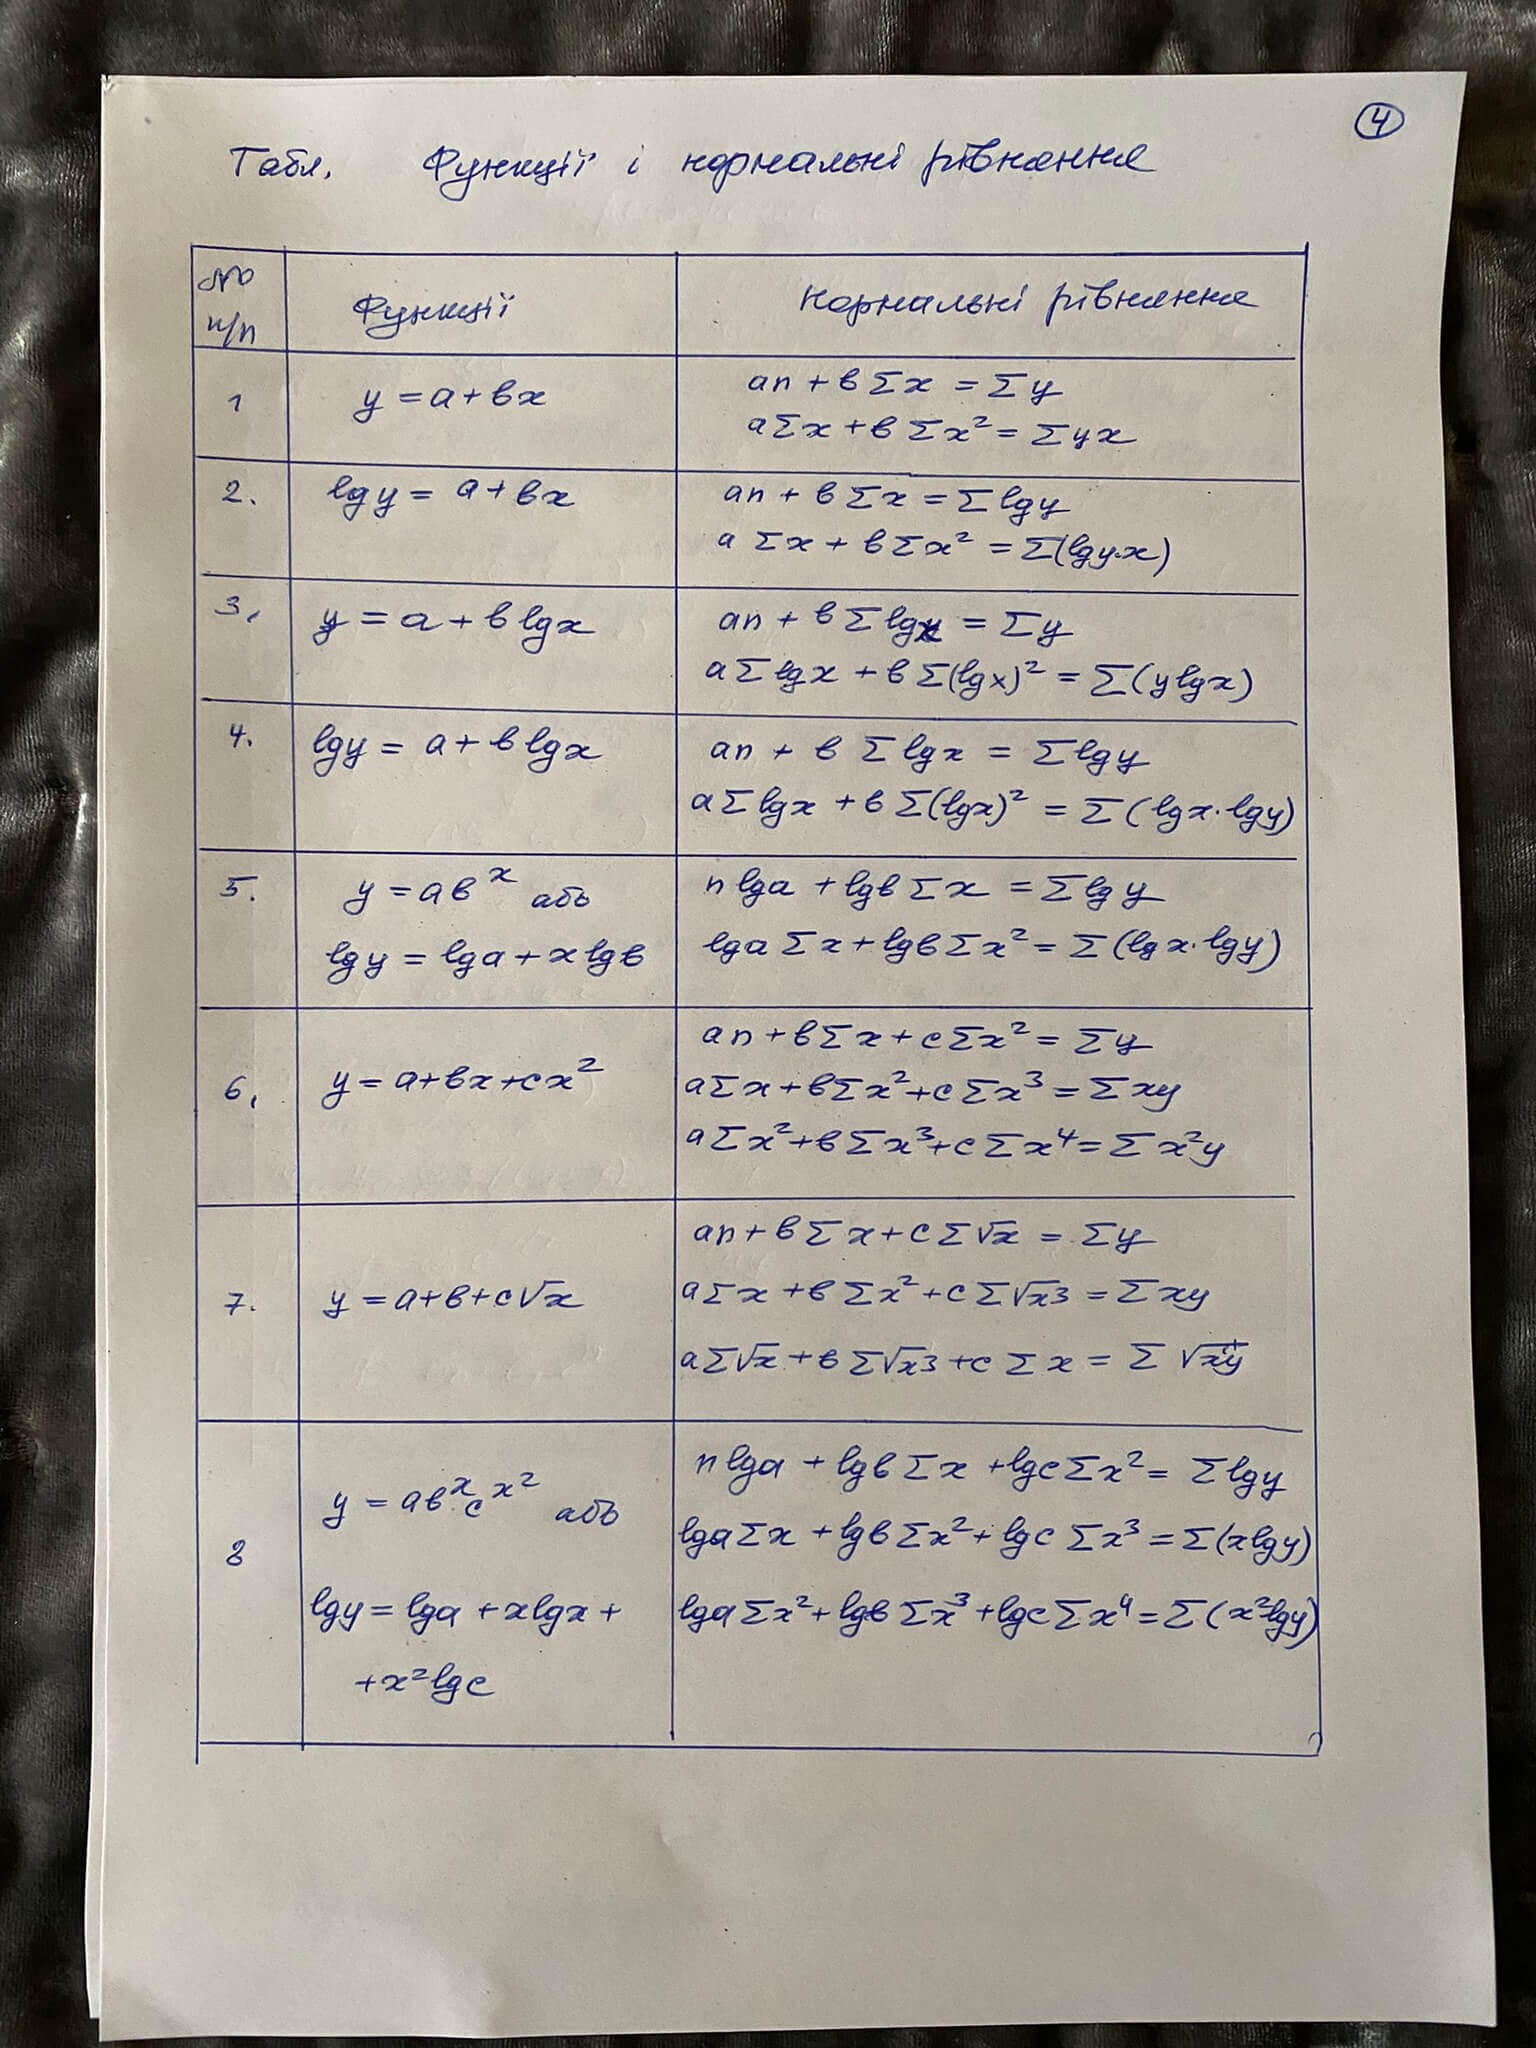 4
Табл. Функції і нормальні рівняння
№ п/п Функції Нормальні рівняння
1 y = a + bx an + b Σx = Σy
a Σx + b Σx² = Σyx
2. lgy = a + bx an + b Σx = Σlgy
a Σx + b Σx² = Σ(lgy·x)
3. y = a + b lgx an + b Σlgx = Σy
a Σlgx + b Σ(lgx)² = Σ(ylgx)
4. lgy = a + b lgx an + b Σlgx = Σlgy
a Σlgx + b Σ(lgx)² = Σ(lgx·lgy)
5. y = ab^x або n lga + lgb Σx = Σlgy
lgy = lga + xlgb lga Σx + lgb Σx² = Σ(lgx·lgy)
6. y = a + bx + cx² an + b Σx + c Σx² = Σy
a Σx + b Σx² + c Σx³ = Σxy
a Σx² + b Σx³ + c Σx⁴ = Σx²y
7. y = a + b + c√x an + b Σx + c Σ√x = Σy
a Σx + b Σx² + c Σ√x3 = Σxy
a Σ√x + b Σ√x3 + c Σx = Σ√xy
8 y = ab^x c^x² або n lga + lgb Σx + lgc Σx² = Σlgy
lga Σx + lgb Σx² + lgc Σx³ = Σ(xlgy)
lgy = lga + xlgx + lga Σx² + lgb Σx³ + lgc Σx⁴ = Σ(x²lgy)
+ x²lgc